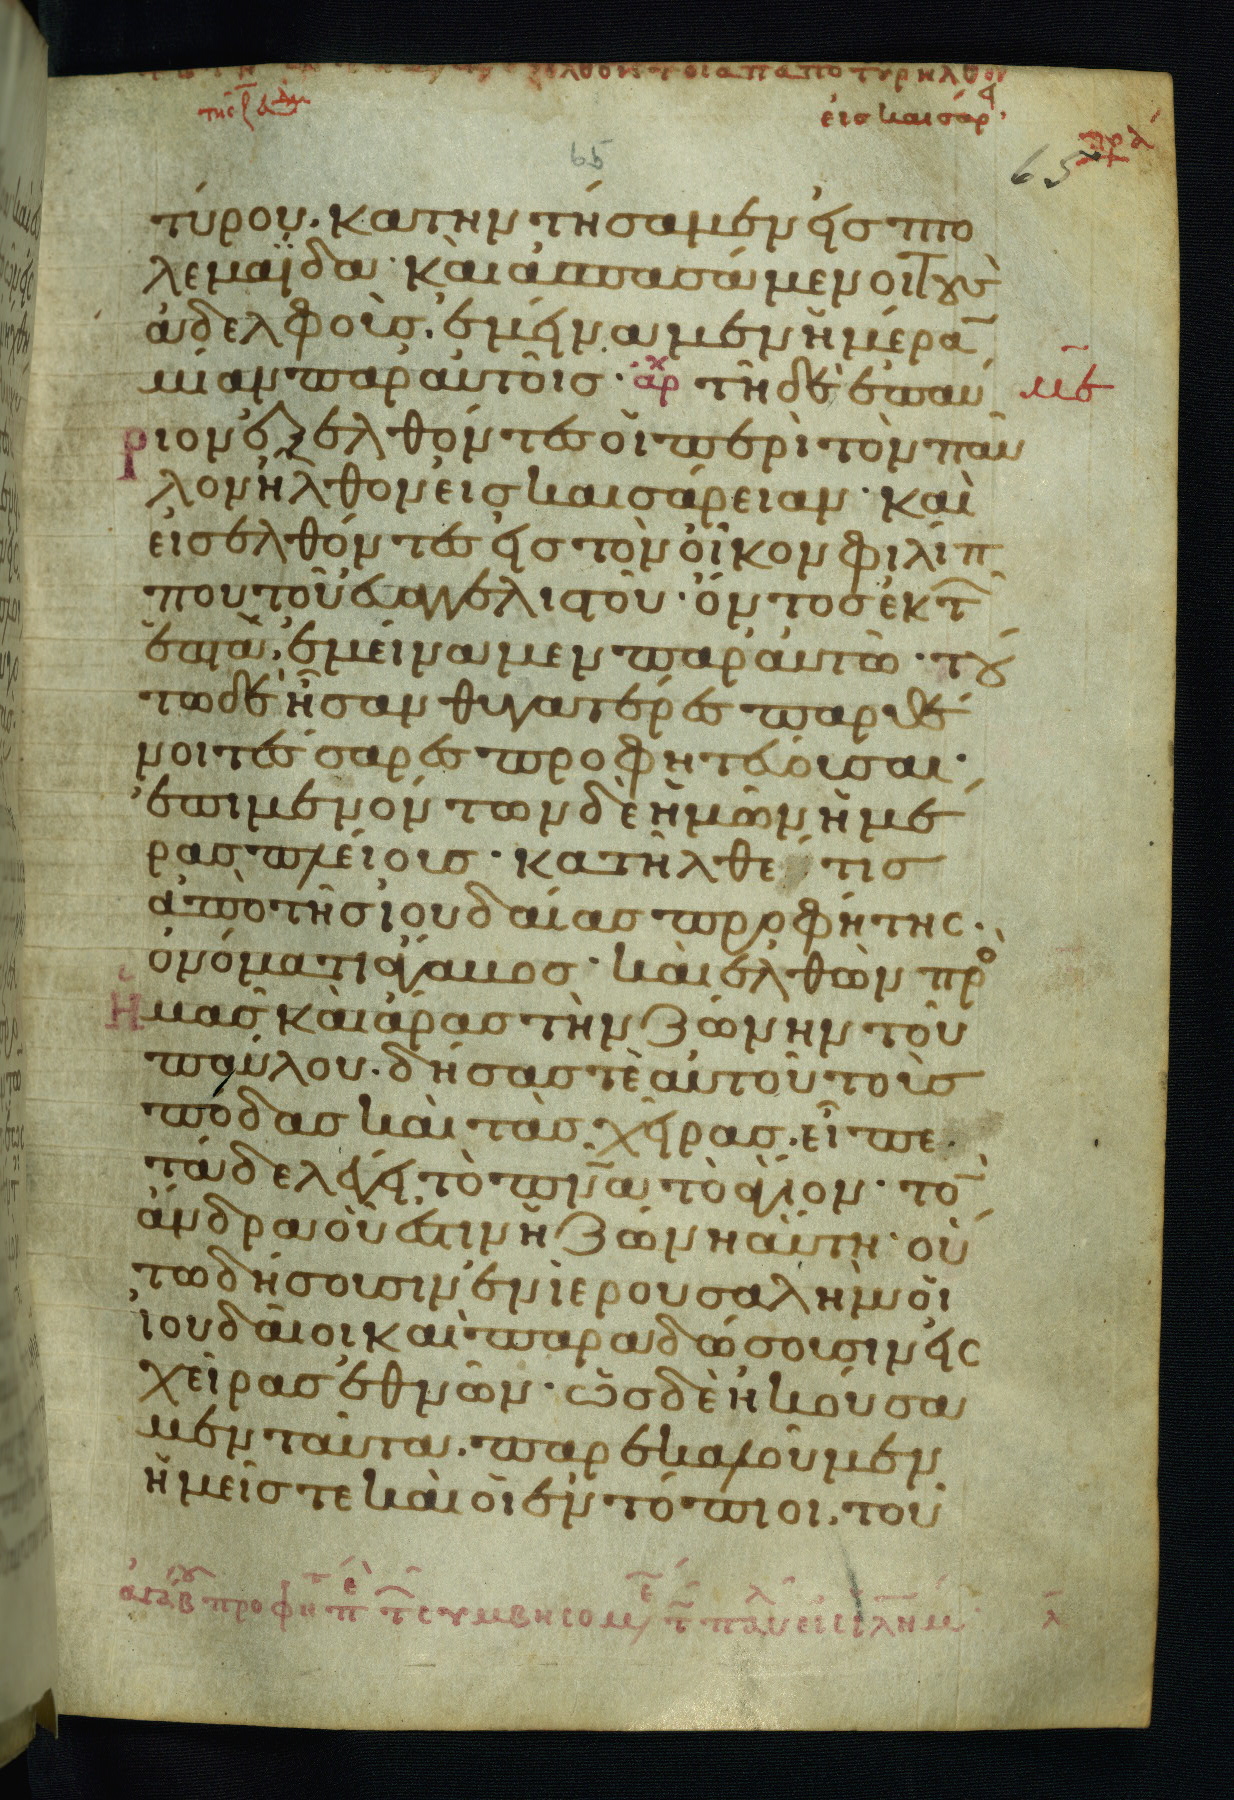 εἰς καισάρ
65
65
τύρου. κατηντήσαμεν εἰς πτο
λεμαΐδα· καὶ ἀσπασάμενοι τοὺς
ἀδελφοὺς. ἐμείναμεν ἡμέραν
μίαν παρ αὐτοῖς· ἀρχ τῆ δὲ ἐπαύ
ριον ἐξελθόντες οἱ περὶ τὸν παῦ
λον ἦλθον εἰς καισάρειαν· καὶ
εἰσελθόντες εἰς τὸν οἶκον φιλίπ
που τοῦ εὐαγγελιστοῦ· ὄντος ἐκ τῶν
ἑπτὰ. ἐμείναμεν παρ αὐτῶ· τού
τω δὲ ἦσαν θυγατέρες παρθέ
νοι τέσσαρες προφητεύουσαι·
ἐπιμενόντων δὲ ἡμῶν ἡμέ
ρας πλείους· κατῆλθέ τις
ἀπὸ τῆς ἰουδαίας προφήτης.
ὀνόματι ἄγαβος· καὶ ἐλθὼν πρὸς
ἡμᾶς καὶ ἄρας τὴν ζώνην τοῦ
παύλου. δήσας τὲ αὐτοῦ τοὺς
πόδας καὶ τὰς χεῖρας. εἶπε.
τάδε λέγει τὸ πνᾶ τὸ ἅγιον· τὸν
ἄνδρα οὗ ἐστιν ἡ ζώνη αὕτη· οὕ
τω δήσουσιν ἐν ἱερουσαλὴμ οἱ
ἰουδαῖοι καὶ παραδώσουσιν εἰς
χεῖρας ἐθνῶν· ὡς δὲ ἠκούσα
μεν ταῦτα. παρεκαλοῦμεν
ἡμεῖς τε καὶ οἱ ἐντόπιοι. τοῦ